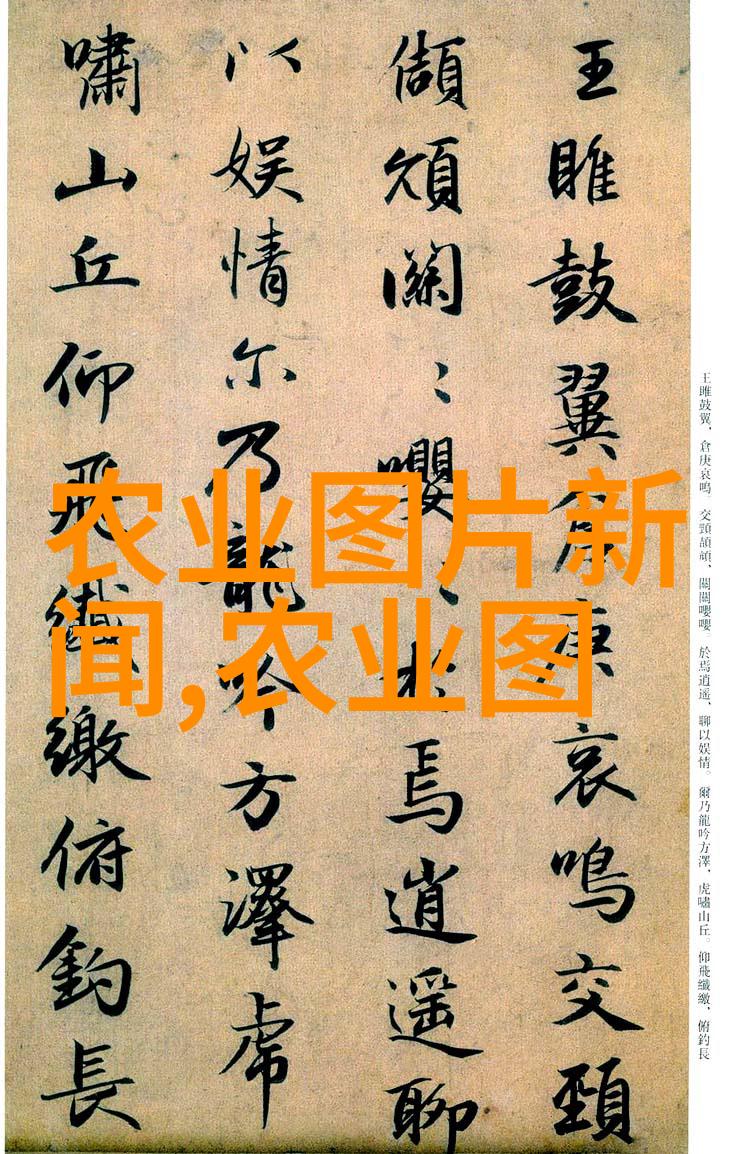 王雎鼓翼倉庚哀鳴交頸
頡頏關〻嚶〻於焉逍遥聊
以娱情尔乃龍吟方澤虎
嘯山丘仰飛纖繳俯釣長
王雎鼓翼、倉庚哀鳴。交頸頡頏、關關嚶嚶。於焉逍遥、聊以娱情。爾乃龍吟方澤、虎嘯山丘。仰飛纖繳、俯釣長
农业图片新
闻,农业图